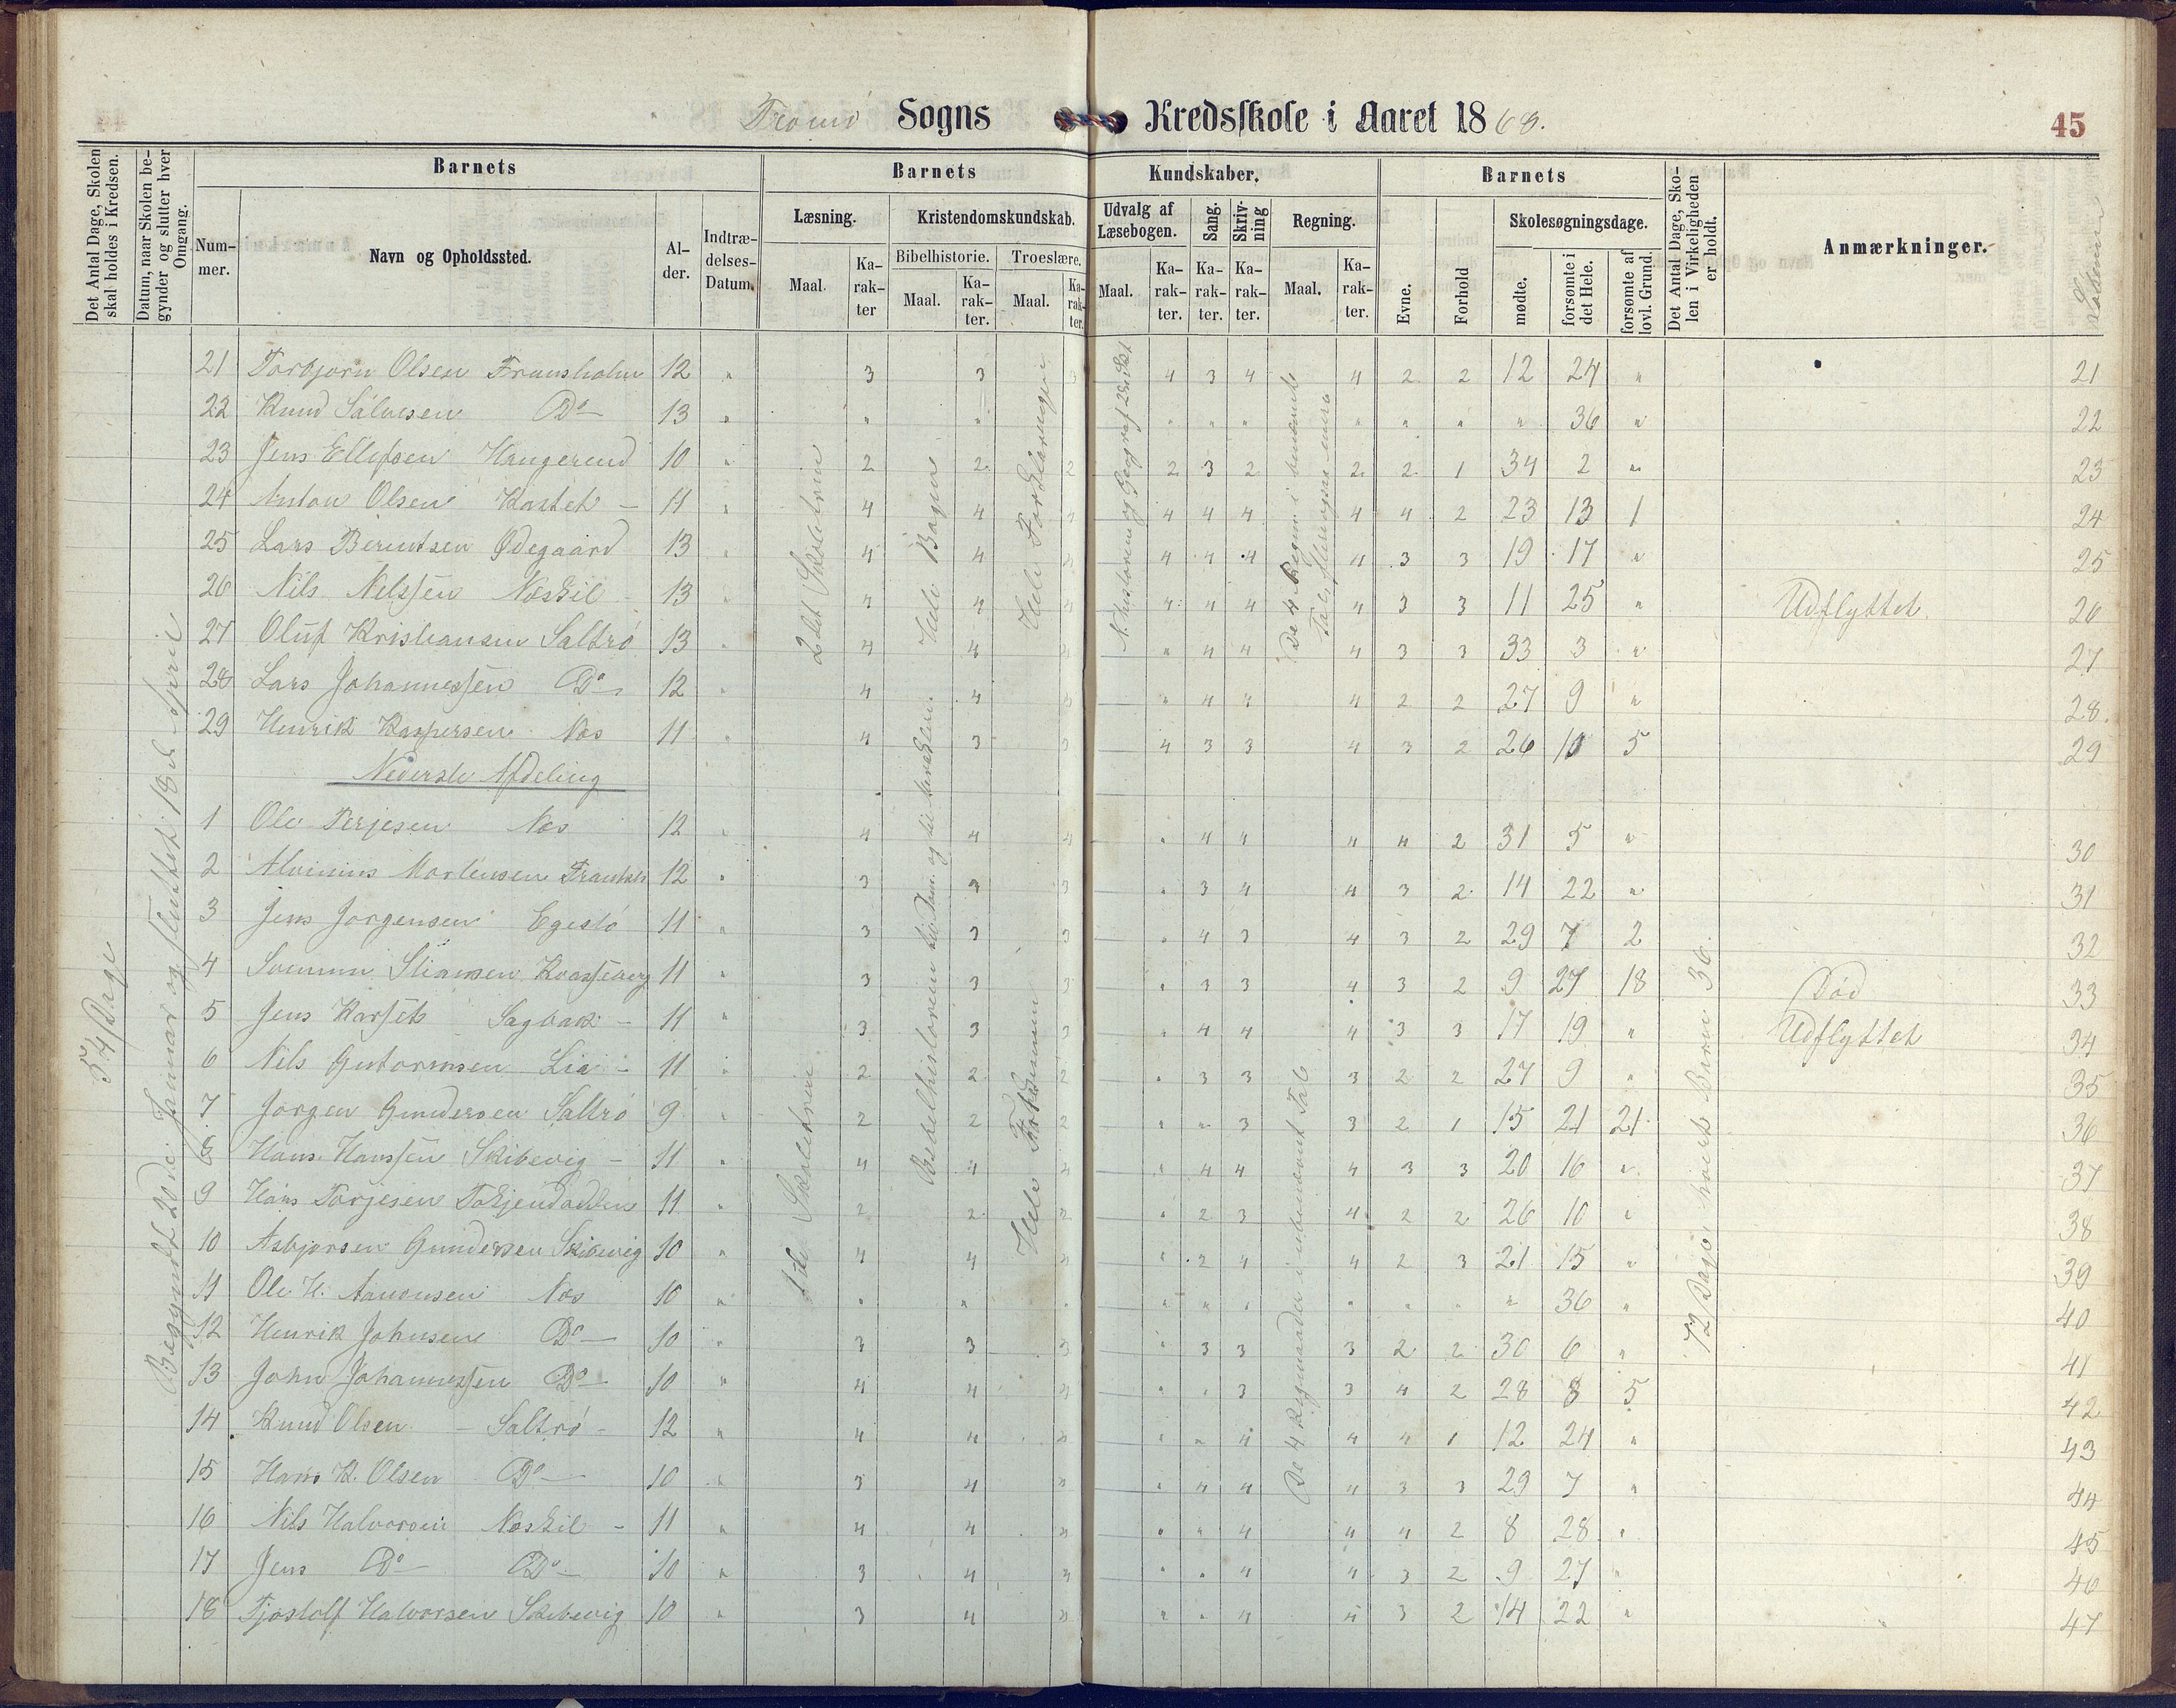 Tromø Sogns Kredsskole i Aaret 1868.
45
Det Antal Dage, Skolen skal holdes i Kredsen.
Datum, naar Skolen begynder og slutter hver Omgang.
Barnets
Nummer.
Navn og Opholdssted.
Alder.
Indtrædelses-Datum.
Barnets Kundskaber.
Læsning.
Maal.
Karakter
Kristendomskundskab.
Bibelhistorie.
Maal.
Karakter.
Troeslære.
Maal.
Karakter.
Udvalg af Læsebogen.
Maal.
Karakter.
Sang.
Karakter.
Skrivning
Karakter.
Regning.
Maal.
Karakter.
Barnets
Evne.
Forhold
Skolesøgningsdage.
mødte.
forsømte i det Hele.
forsømte af lovl. Grund.
Det Antal Dage, Skolen i Virkeligheden er holdt.
Anmærkninger.
54 Dage
Begyndt 20de Januar og sluttet 18de April
2det Skoletrin
Hele Bogen
Hele Forklaringen
De 4 Regnin. i benævnte Tal,
21 Torbjørn Olsen Fransholm 12 " 3 3 3 4 3 4 4 2 2 12 24 " 21
22 Knud Salvesen Do 13 " " " " " " " " " " 36 " 22
23 Jens Ellefsen Haugerend 10 " 2 2 2 2 3 2 2 2 1 34 2 " 23
24 Anton Olsen Kastet 11 " 4 4 4 4 4 4 4 4 2 23 13 1 24
25 Lars Berentsen Ødegaard 13 " 4 4 4 4 4 4 4 3 3 19 17 " 25
26 Nils Nelssen Næskil 13 " 4 4 4 4 4 4 4 3 3 11 25 " Udflyttet 26
27 Oluf Kristiansen Saltrø 13 " 4 4 4 " 4 4 4 3 3 33 3 " 27
28 Lars Johannessen Do 12 " 4 4 4 " 4 4 4 2 2 27 9 " 28.
29 Henrik Kaspersen Næs 11 " 4 3 3 4 3 3 4 3 2 26 10 5 29
Nederste Afdeling
1ste Skoletrin
Hele
De 4 Regnmaader i ubenævnt Tal
72 Dage hvert Barn 36.
1 Ole Terjesen Næs 12 " 4 4 4 " 4 4 4 4 2 31 5 " 30
2 Alvinius Mortensen 12 " 3 3 3 " 3 4 4 3 2 14 22 " 31
3 Jens Jørgensen Egeslø 11 " 3 3 3 " 4 3 4 3 2 29 7 2 32
4 Stiansen 11 " 3 3 3 " 3 3 4 3 2 9 27 18 Død 33
5 Jens Sagbak 11 " 3 3 3 " 4 4 4 3 3 17 19 " Udflyttet 34
6 Nils Gutormsen Lia 11 " 2 2 2 " 3 3 3 2 2 27 9 " 35
7 Jørgen Gundersen Saltrø 9 " 2 2 2 " " 3 3 2 1 15 21 21 36
8 Hans Hanssen Skibevig 11 " 4 4 4 " 4 4 4 3 3 20 16 " 37
9 Hans Torjesen 11 " 2 2 2 " 2 3 4 2 2 26 10 " 38
10 Asbjørsen Gundersen Skibevig 10 " 4 4 4 " 2 4 4 2 3 21 15 " 39
11 Ole H. Aanonsen Næs 10 " " " " " " " " " " " 36 " 40
12 Henrik Johnsen Do 10 " 3 3 3 " 3 3 3 2 2 30 6 " 41
13 John Johannessen Do 10 " 4 4 4 " " 3 3 4 2 28 8 5 42
14 Knud Olsen Saltrø 12 " 4 4 " " " 4 4 4 1 12 24 " 43
15 Hans K. Olsen Do 10 " 3 4 " " 4 4 4 3 3 29 7 " 44
16 Nils Halvorsen Næskil 11 " 4 4 " " " 4 4 4 2 8 28 " 45
17 Jens Do Do 10 " 3 4 " " " 4 4 3 2 9 27 " 46
18 Fjostolf Halvorsen Skibevig 10 " 3 4 " " " 4 4 3 2 14 22 " 47